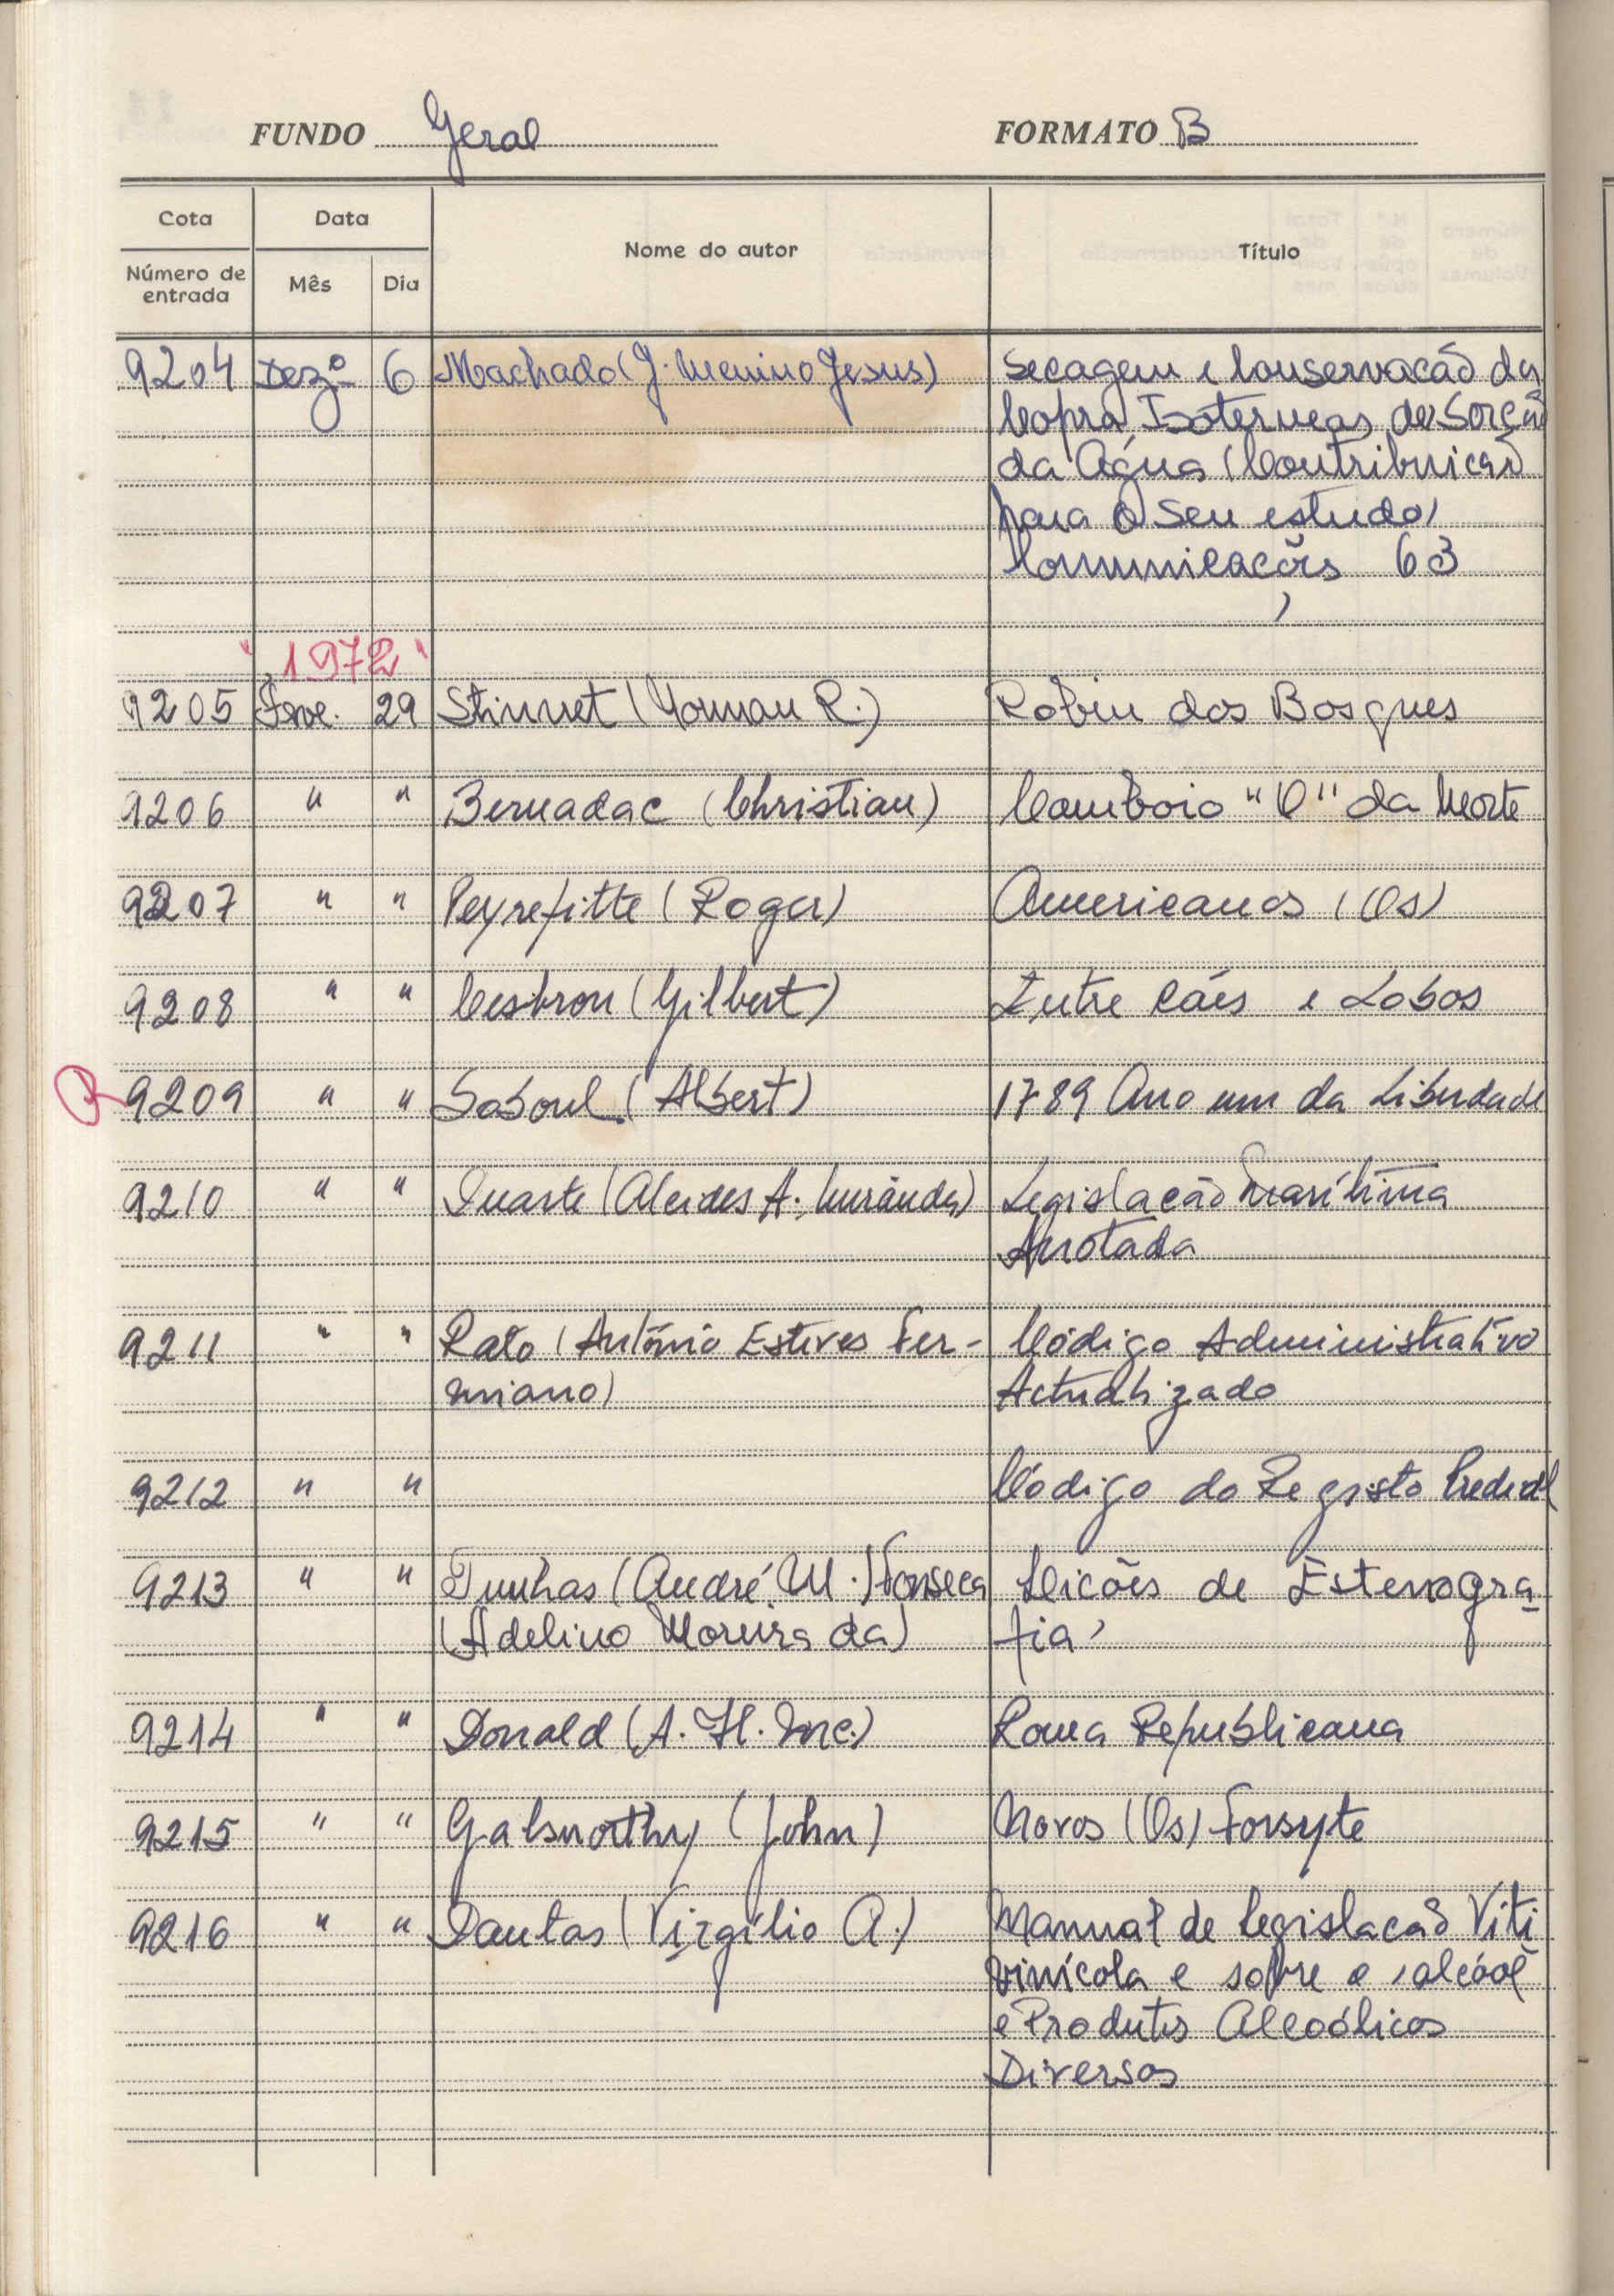 FUNDO Geral FORMATO B
Cota Data Nome do autor Título
Número de entrada Mês Dia
9204 Dezº 6 Machado (J. Menino Jesus) Secagem e Conservação da
Copra, Isotermas de Sorção
da Água (Contribuição
para o seu estudo)
Comunicações 63
" 1972 "
9205 Feve. 29 Stinnet (Norman R.) Robin dos Bosques
9206 " " Bernadac (Christian) Comboio "O" da Morte
9207 " " Peyrefitte (Roger) Americanos (Os)
9208 " " Cesbron (Gilbert) Entre Cães e Lobos
R 9209 " " Soboul (Albert) 1789 Ano um da Liberdade
9210 " " Duarte (Alcides A. Miranda) Legislação Marítima
Anotada
9211 " " Rato (António Esteves Fer-
miano) Código Administrativo
Actualizado
9212 " " Código do Registo Predial
9213 " " (André M.) Fonseca Lições de Estenogra-
(Adelino Moreira da) fia
9214 " " Donald (A. H. Mc.) Roma Republicana
9215 " " Galsworthy (John) Novos (Os) Forsyte
9216 " " Dantas (Virgílio A.) Manual de Legislação Viti
vinícola e sobre o alcóol
e Produtos Alcoólicos
Diversos